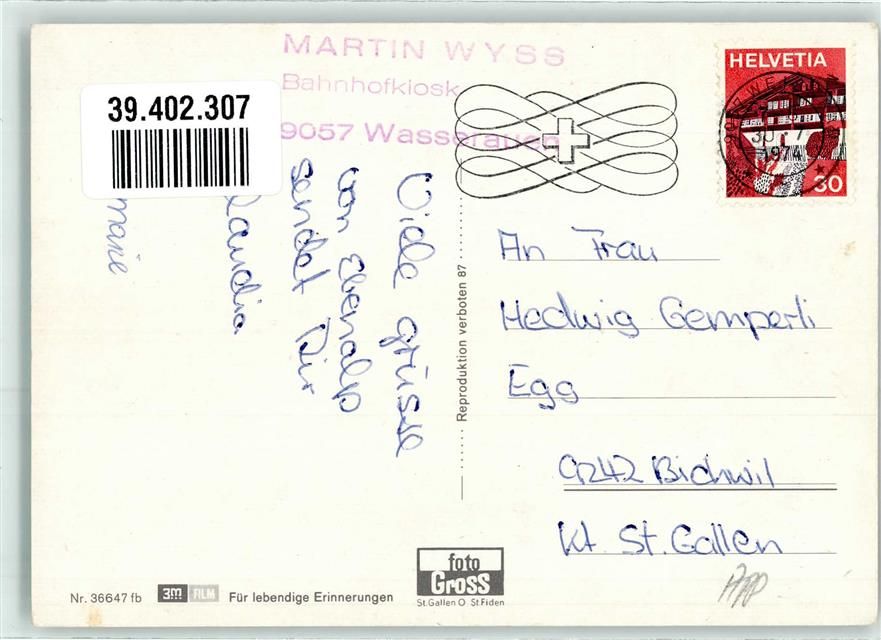 MARTIN WYSS
Bahnhofkiosk
9057 Wasserauen
39.402.307
HELVETIA
30
1974
Viele Grüsse
von Ebenalp
sendet Dir
Claudia
Reproduktion verboten 87
An Frau
Hedwig Gemperli
Egg
9242 Bichwil
Kt. St. Gallen
App
Nr. 36647 fb
3M FILM
Für lebendige Erinnerungen
foto
Gross
St.Gallen O St.Fiden